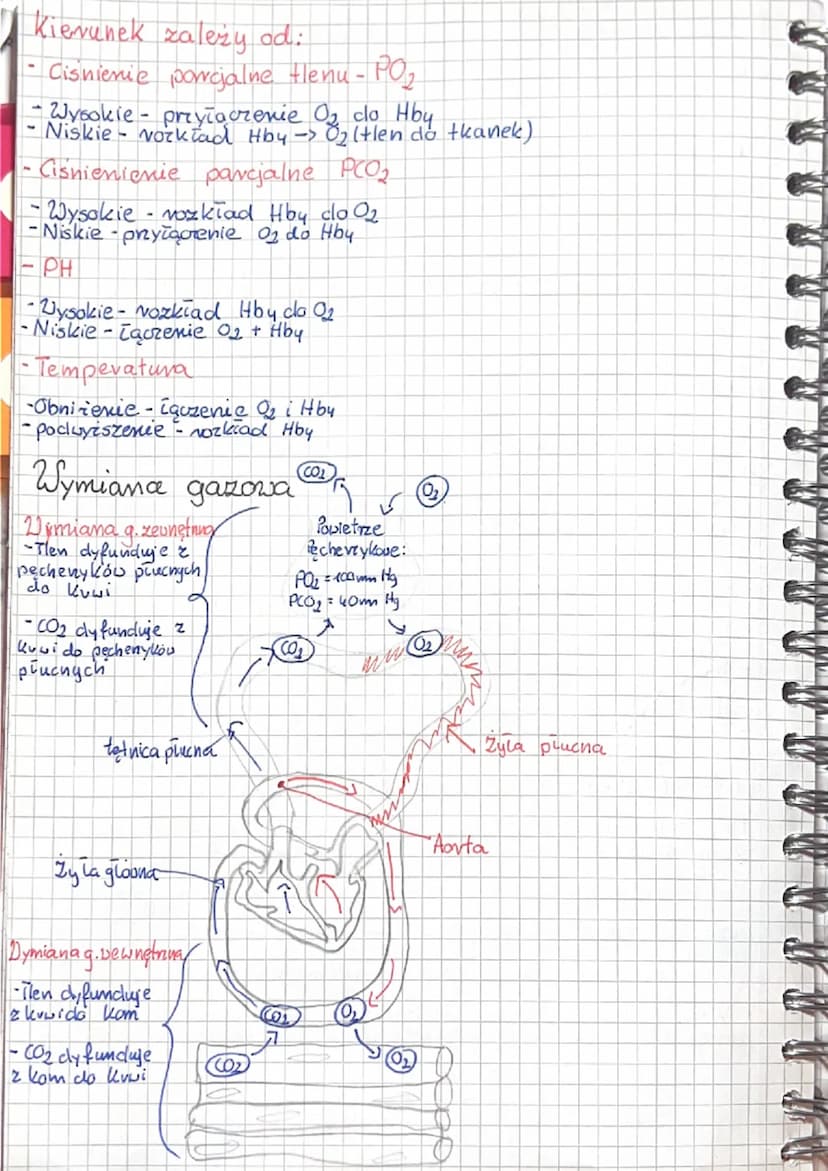 Kierunek zależy od:
- Ciśnienie parcjalne tlenu - PO2
- Wysokie - przyłączenie O2 do Hby
- Niskie - rozkład Hby -> O2 (tlen do tkanek)
- Ciśnienienie parcjalne PCO2
- Wysokie - rozkład Hby do O2
- Niskie - przyłączenie O2 do Hby
- PH
- Wysokie - rozkład Hby do O2
- Niskie - łączenie O2 + Hby
- Temperatura
- Obniżenie - łączenie O2 i Hby
- podwyższenie - rozkład Hby
Wymiana gazowa
CO2
O2
Wymiana g. zewnętrzna
- Tlen dyfunduje z
pęcherzyków płucnych
do krwi
- CO2 dyfunduje z
krwi do pęcherzyków
płucnych
Powietrze
pęcherzykowe:
PO2 = 100mm Hg
PCO2 = 40mm Hg
CO2
O2
tętnica płucna
Żyła płucna
Aorta
Żyła główna
Wymiana g. wewnętrzna
- Tlen dyfunduje
z krwi do kom
- CO2 dyfunduje
z kom do krwi
CO2
O2
CO2
O2